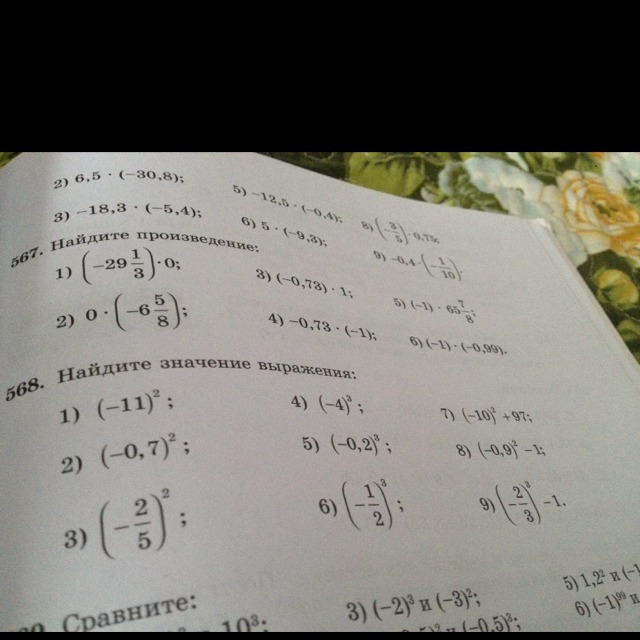 2) 6,5 · (−30,8);
3) −18,3 · (−5,4);
5) −12,5 · (−0,4);
6) 5 · (−9,3);
8) (−3/5) · 0,75;
9) −0,4 · (−1/10).
567. Найдите произведение:
1) (−29 1/3) · 0;
2) 0 · (−6 5/8);
3) (−0,73) · 1;
4) −0,73 · (−1);
5) (−1) · 65 7/8;
6) (−1) · (−0,99).
568. Найдите значение выражения:
1) (−11)²;
2) (−0,7)²;
3) (−2/5)²;
4) (−4)³;
5) (−0,2)³;
6) (−1/2)³;
7) (−10)² + 97;
8) (−0,9)² − 1;
9) (−2/3)³ − 1.
Сравните:
10³;
3) (−2)³ и (−3)²;
5) 1,2² и (−1
6) (−1)⁹⁹ и